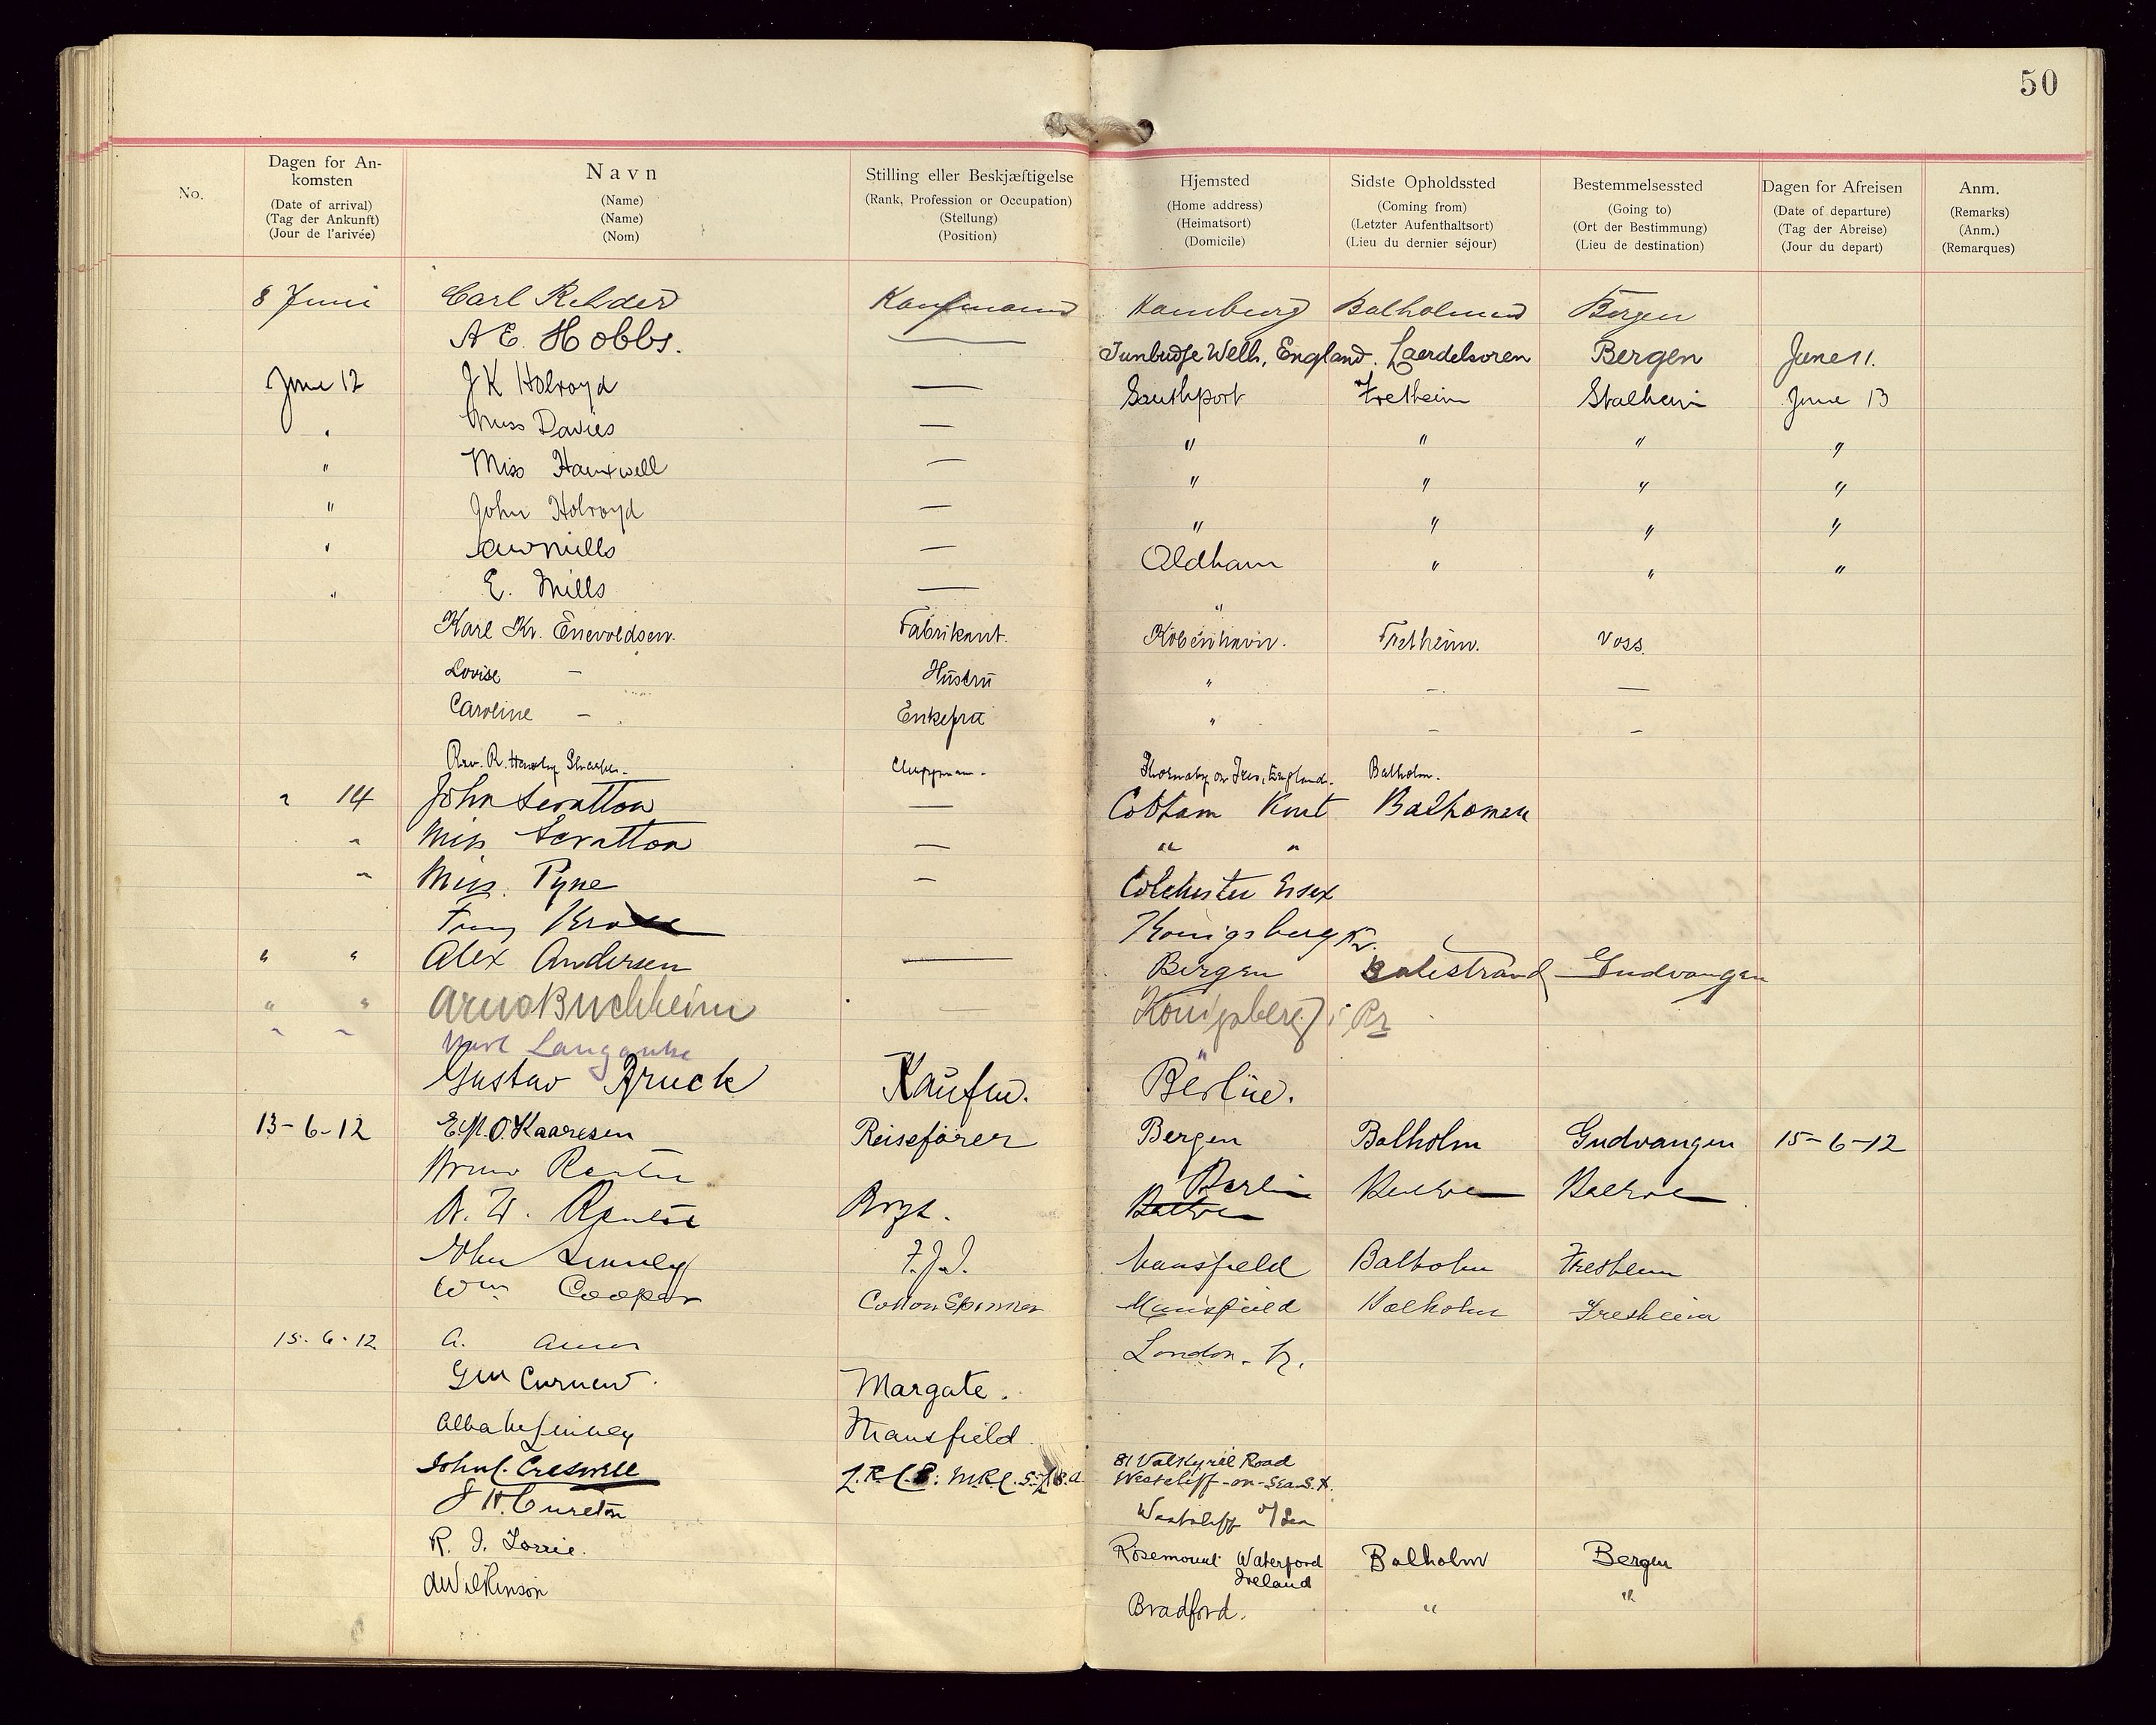 50
No.
Dagen for An-
komsten
(Date of arrival)
(Tag der Ankunft)
(Jour de l'arivée)
Navn
(Name)
(Name)
(Nom)
Stilling eller Beskjæftigelse
(Rank, Profession or Occupation)
(Stellung)
(Position)
Hjemsted
(Home address)
(Heimatsort)
(Domicile)
Sidste Opholdssted
(Coming from)
(Letzter Aufenthaltsort)
(Lieu du dernier séjour)
Bestemmelsessted
(Going to)
(Ort der Bestimmung)
(Lieu de destination)
Dagen for Afreisen
(Date of departure)
(Tag der Abreise)
(Jour du depart)
Anm.
(Remarks)
(Anm.)
(Remarques)
8 Juni Carl Rehder Kaufmann Hamburg Balholmen Bergen
A E. Hobbs. — Tunbridge Wells, England. Laerdelsoren Bergen June 11.
June 12 J K Holroyd — Southport Fretheim Stalheim June 13
" Miss Davies — " " " "
" Miss — " " " "
" John Holroyd — " " " "
" Mills — Oldham " " "
" E. Mills — "
Karl Kr. Enevoldsen. Fabrikant. Köbenhavn. Fretheim. Voss.
Lovise — Hüstrü " — —
Caroline — Enkefrü " — —
Rev. R. Sharpe. Clergyman. Thornaby on Tees, England. Balholm.
" 14 John Scratton — Cobham Kent Balholmen
" Miss Scratton — " "
" Miss. Pyne — Colchester Essex
Königsberg Pr.
" " Alex Andersen — Bergen Balestrand Gudvangen
" " Arno Buchheim — Königsberg i Pr
" " Langanke "
Gustav Bruck Kaufm. Berlin.
13-6-12 E.M.O. Kaaresen Reiseförer Bergen Balholm Gudvangen 15-6-12
Bruno Berlin
John Linney F.J.I. Mansfield Balholm Fretheim
Wm Cooper Cotton Spinner Mansfield Balholm Fretheim
15-6-12 A. London.
Curnow. Margate.
Linney Mansfield
John C. Creswell L.R.C.P. M.R.C.S. L.S.A. 81 Valkyrie Road
Westcliff-on-Sea
J H. Cureton Westcliff o/Sea
R. J. Rosemount Waterford Balholm Bergen
Ireland
A Wilkinson Bradford. " "